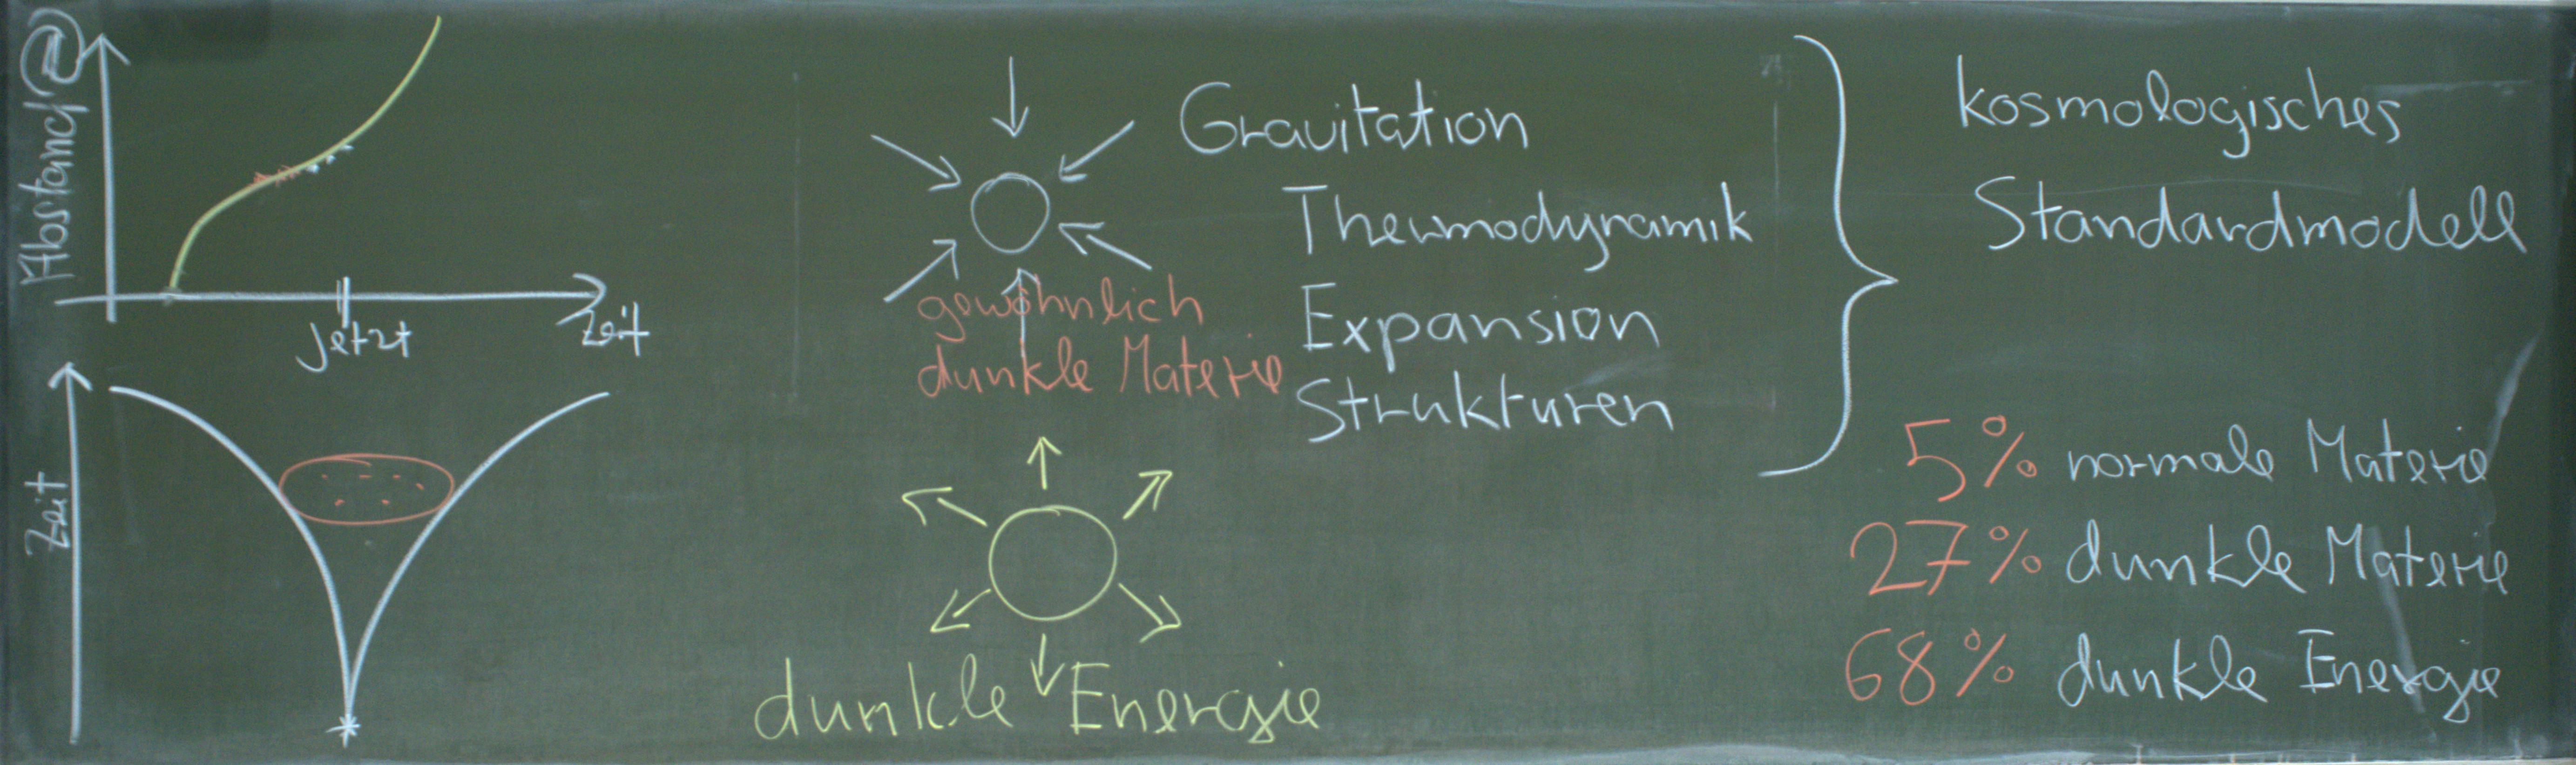 Abstand
Jetzt
Zeit
Zeit
Gravitation
Thermodynamik
Expansion
Strukturen
gewöhnlich
dunkle Materie
dunkle Energie
kosmologisches
Standardmodell
5% normale Materie
27% dunkle Materie
68% dunkle Energie